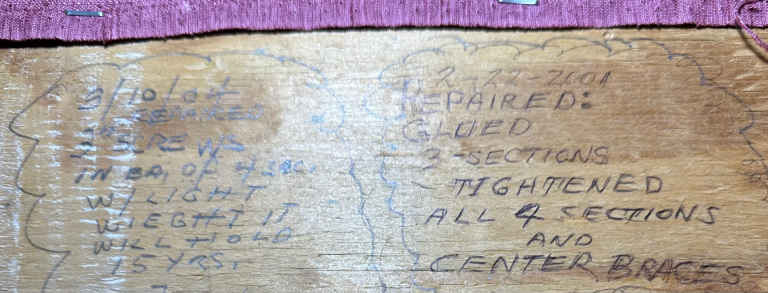 5/10/04
SCREWS
IN EA. OF 4 SEC.
W/LIGHT
WIEGHT IT
WILL HOLD
15 YRS.
2-22-2001
REPAIRED:
GLUED
3-SECTIONS
- TIGHTENED
ALL 4 SECTIONS
AND
CENTER BRACES